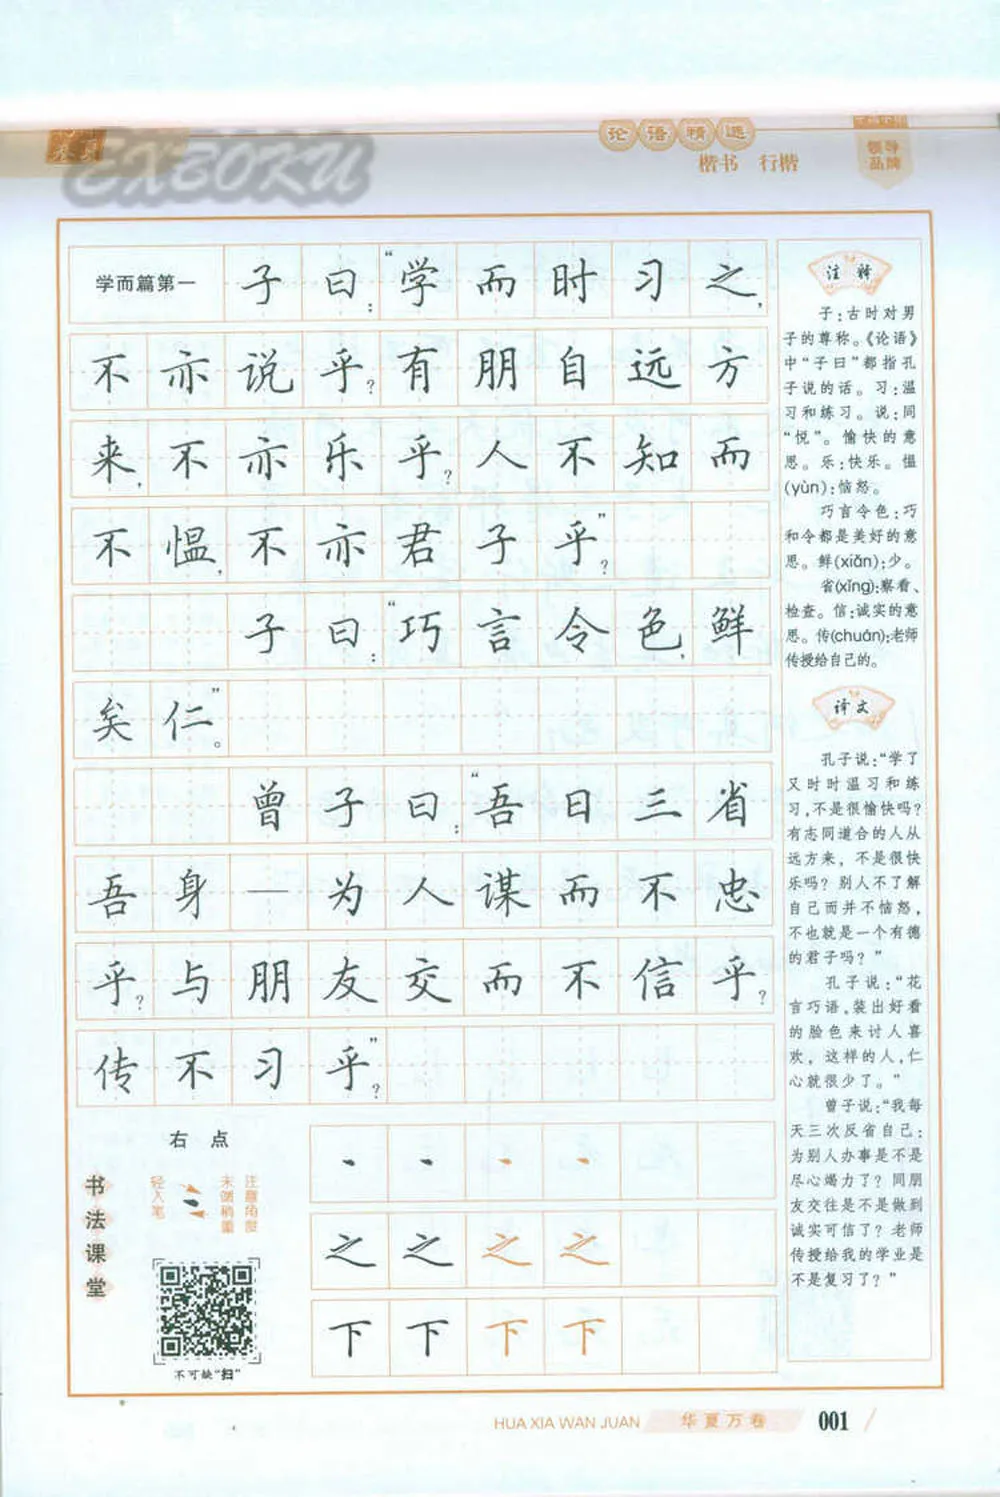 华夏
EXBOKU
论语精选
楷书 行楷
领导
品牌
学而篇第一 子曰:“学而时习之,
不亦说乎?有朋自远方
来,不亦乐乎?人不知而
不愠,不亦君子乎?”
子曰:“巧言令色,鲜
矣仁。”
曾子曰:“吾日三省
吾身—为人谋而不忠
乎?与朋友交而不信乎?
传不习乎?”
注释
子:古时对男
子的尊称。《论语》
中“子曰”都指孔
子说的话。习:温
习和练习。说:同
“悦”。愉快的意
思。乐:快乐。愠
(yùn):恼怒。
巧言令色:巧
和令都是美好的意
思。鲜(xiǎn):少。
省(xǐng):察看、
检查。信:诚实的意
思。传(chuán):老师
传授给自己的。
译文
孔子说:“学了
又时时温习和练
习,不是很愉快吗?
有志同道合的人从
远方来,不是很快
乐吗?别人不了解
自己而并不恼怒,
不也就是一个有德
的君子吗?”
孔子说:“花
言巧语,装出好看
的脸色来讨人喜
欢,这样的人,仁
心就很少了。”
曾子说:“我每
天三次反省自己:
为别人办事是不是
尽心竭力了?同朋
友交往是不是做到
诚实可信了?老师
传授给我的学业是
不是复习了?”
书法课堂
右点
轻入笔
末侧稍重
注意角度
不可缺“扫”
之 之 之 之
下 下 下 下
HUA XIA WAN JUAN 华夏万卷 001